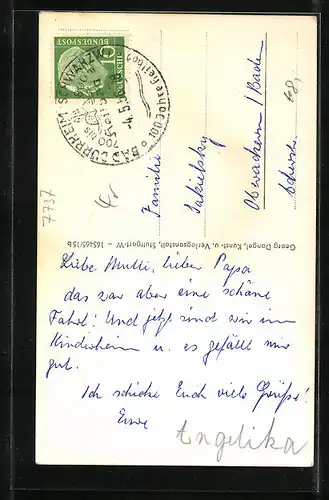 DEUTSCHE
BUNDESPOST
10
BAD DÜRRHEIM
SCHWARZW
700 bis
-4.5.5
Familie
Sakielsky
Oberachern / Baden
7737
Georg Dangel, Kunst- u. Verlagsanstalt, Stuttgart-W – 16546/15 b
Liebe Mutti, lieber Papa
das war aber eine schöne
Fahrt! Und jetzt sind wir im
Kinderheim u. es gefällt mir
gut.
Ich schicke Euch viele Grüße!
Eure
Angelika